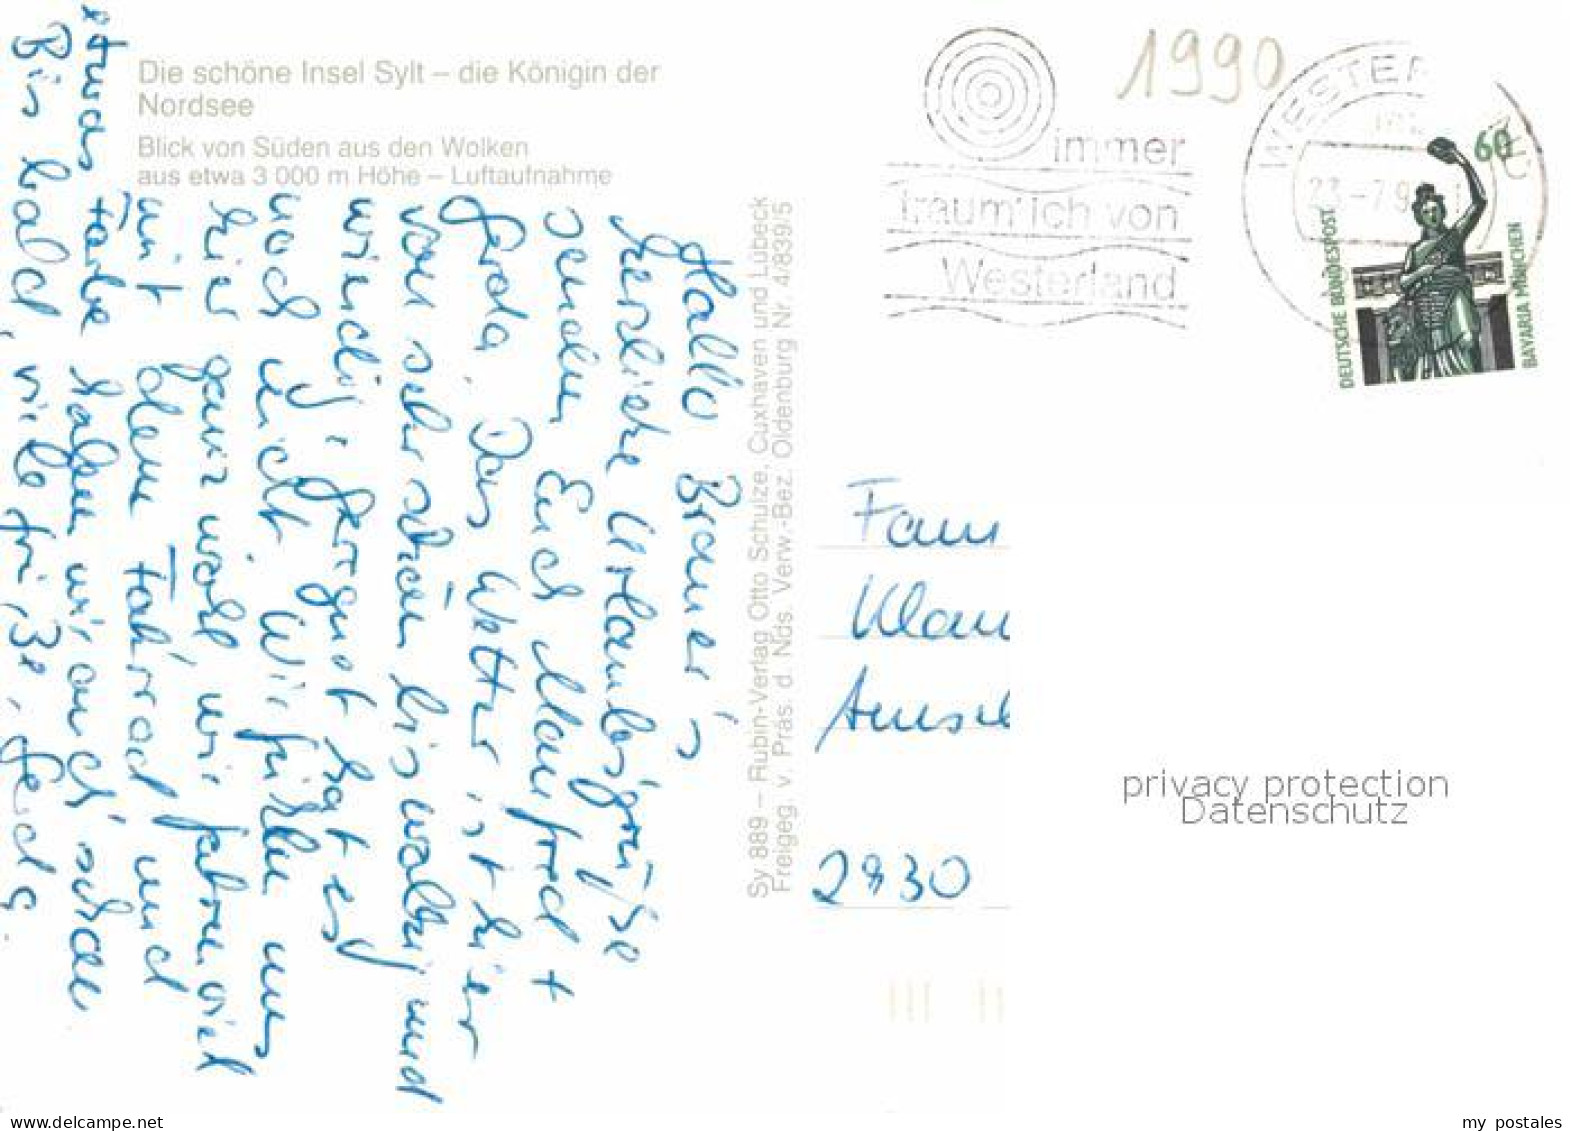 Die schöne Insel Sylt – die Königin der
Nordsee
Blick von Süden aus den Wolken
aus etwa 3 000 m Höhe – Luftaufnahme
Hallo
herzliche Urlaubsgrüße
senden Euch Manfred +
Gerda. Das Wetter ist hier
von sehr schön bis wolkig und
windig. Geregnet hat es
noch nicht. Wir fühlen uns
hier ganz wohl, wir fahren viel
mit dem Fahrrad und
etwas Farbe haben wir auch schon
Bis bald, viele Grüße, Gerda.
Sy 889 – Rubin-Verlag Otto Schulze, Cuxhaven und Lübeck
Freigeg. v. Präs. d. Nds. Verw.-Bez. Oldenburg Nr. 4/839/5
1990
immer
träum' ich von
Westerland
WESTER
23.-7.9
60
DEUTSCHE BUNDESPOST
BAVARIA MÜNCHEN
Fam
Klau
Amsel
2930
privacy protection
Datenschutz
www.delcampe.net
my_postales